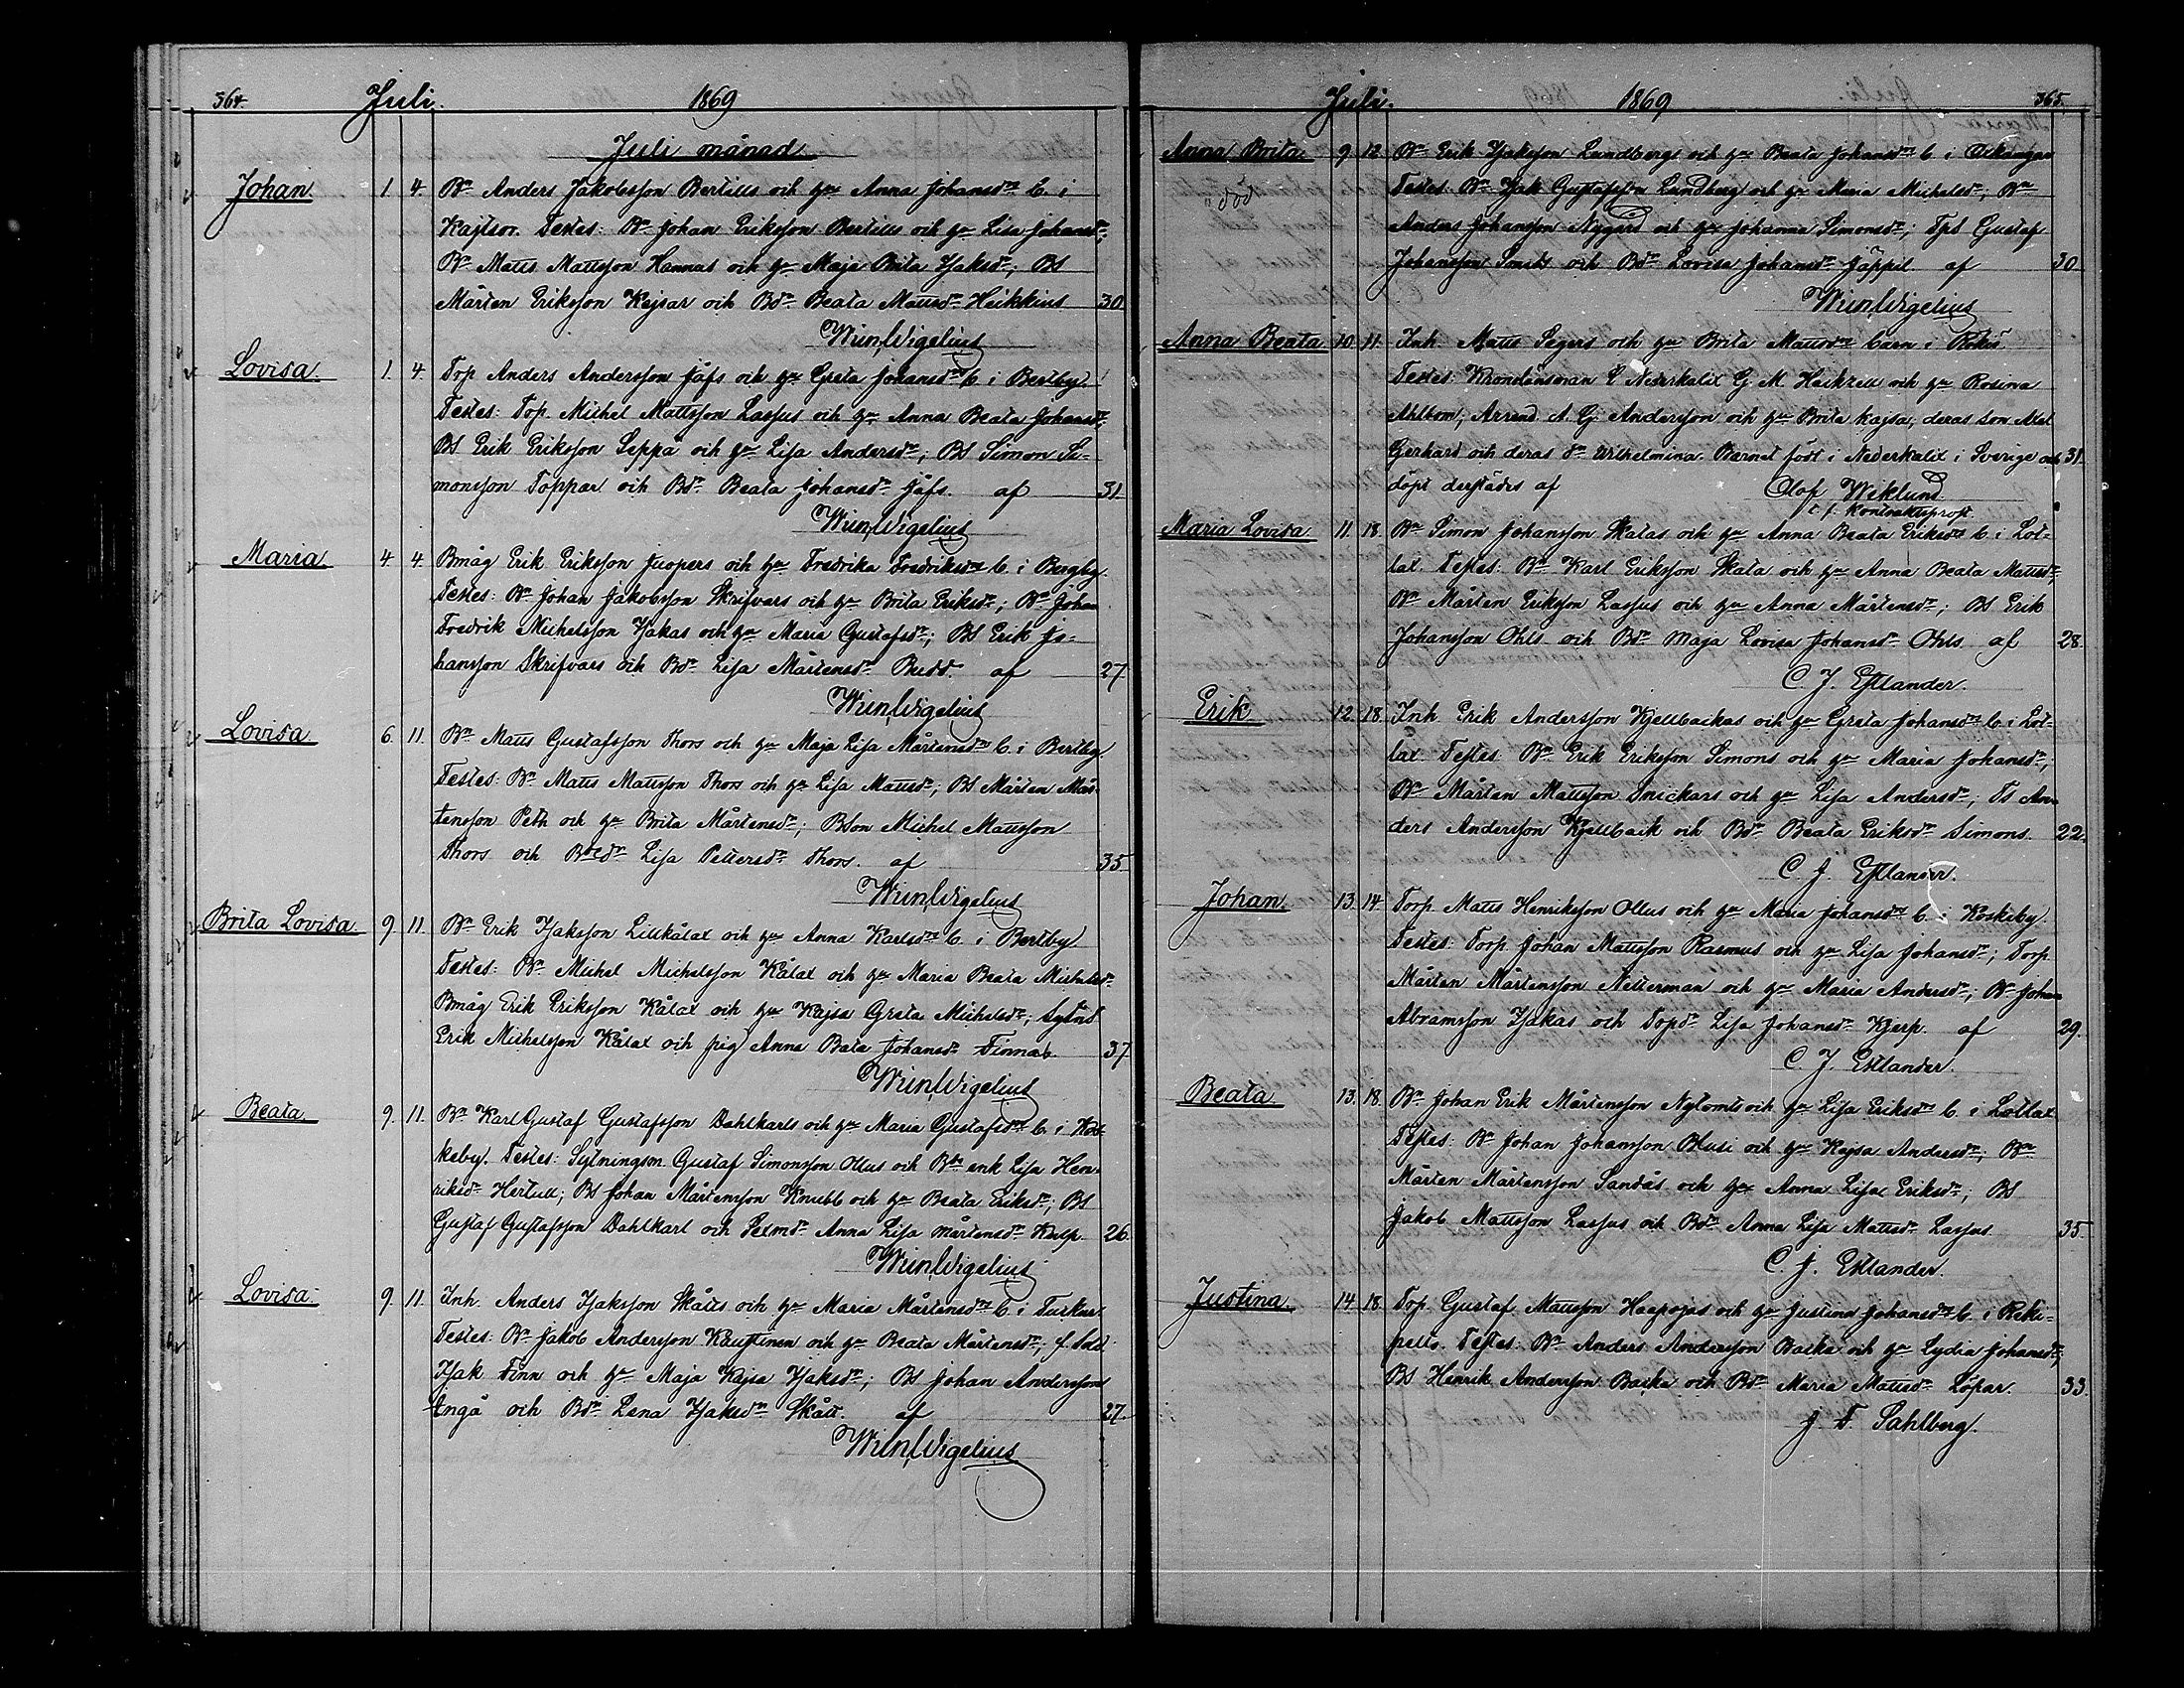 564. Juli. 1869
Juli månad
Johan 1. 4. Bn Anders Jakobsson Bertills och h:u Anna Johansdr b. i
Kajtsor. Testes: Bn Johan Eriksson Bertills och h:u Lisa Johansdr;
Bn Matts Mattsson Hannus och h:u Maja Brita Isaksdr; BS
Mårten Eriksson Kajsar och Bdr Beata Mattsdr Heikkius 30.
Wm Wigelius
Lovisa. 1. 4. Torp Anders Andersson Jåfs och h:u Greta Johansdr b. i Bertby.
Testes: Torp. Michel Mattsson Lassus och h:u Anna Beata Johansdr;
BS Erik Eriksson Seppä och h:u Lisa Andersdr; BS Simon Si-
monsson Toppar och Bdr Beata Johansdr Jåfs. af 31
Wm Wigelius
Maria 4. 4. Bmåg Erik Eriksson Juopers och h:u Fredrika Fredriksdr b. i Bergby.
Testes: Bn Johan Jakobsson Skrifvars och h:u Brita Eriksdr; Bn Johan
Fredrik Michelsson Isakas och h:u Maria Gustafsdr; BS Erik Jo-
hansson Skrifvars och Bdr Lisa Mårtensdr Budd. af 27.
Wm Wigelius
Lovisa 6. 11. Bn Matts Gustafsson Thors och h:u Maja Lisa Mårtensdr b. i Bertby.
Testes: Bn Matts Mattsson Thors och h:u Lisa Mattsdr; BS Mårten Mår-
tensson Peth och h:u Brita Mårtensdr; BSon Michel Mattsson
Thors och Bdr Lisa Pettersdr Thors. af 35
Wm Wigelius
Brita Lovisa 9. 11. Bn Erik Isaksson Lillkålax och h:u Anna Karlsdr b. i Bertby
Testes: Bn Michel Michelsson Kålax och h:u Maria Beata Michelsdr
Bmåg Erik Eriksson Kålax och h:u Kajsa Greta Michelsdr; Sytnd
Erik Michelsson Kålax och pig Anna Bata Johansdr Finnab. 37
Wm Wigelius
Beata. 9. 11. Bn Karl Gustaf Gustafsson Dahlkarls och h:u Maria Gustafsdr b. i Kos-
keby. Testes: Sytningsm. Gustaf Simonsson Ollus och Bdr enk Lisa Hen-
riksdr Hertull; BS Johan Mårtensson Knubb och h:u Beata Eriksdr; BS
Gustaf Gustafsson Dahlkarl och Anna Lisa Mårtensdr 26.
Wm Wigelius
Lovisa. 9. 11. Inh. Anders Isaksson Skåtts och h:u Maria Mårtensdr b. i Turkus.
Testes: Bn Jakob Andersson Kaustinen och h:u Beata Mårtensdr; f. Sold
Isak Finn och h:u Maja Kajsa Isaksdr; BS Johan Andersson
Ingå och Bdr Lena Isaksdr Skått. af 27.
Wm Wigelius
Juli. 1869 565.
Anna Brita. 9. 12. Bn Erik Isaksson Lundbergs och h:u Beata Johansdr b. i Oxkangar
"död" Testes: Bn Isak Gustafsson Lundberg och h:u Maria Michelsdr; Bn
Anders Johansson Nygård och h:u Johanna Simonsdr; TpS Gustaf
Johansson Smeds och Bdr Lovisa Johansdr Jäppil af 30
Wm Wigelius
Anna Beata 10. 11. Inh. Matts Segers och h:u Brita Mattsdr barn i Rökiö
Testes: Kronolänsman i Nederkalix G. M. Haikzell och h:u Rosina
Ahlbom, Arrend A. G. Andersson och h:u Brita Kajsa, deras son Axel
Gerhard och deras dr Wilhelmina. Barnet född i Nederkalix i Sverige och 31
döpt derstädes af Olof Wiklund
t.f. Kontraktsprost.
Maria Lovisa. 11. 18. Bn Simon Johansson Skatas och h:u Anna Beata Eriksdr b. i Lot-
lax. Testes: Bn Karl Eriksson Skata och h:u Anna Beata Mattsdr
Bn Mårten Eriksson Lassus och h:u Anna Mårtensdr; BS Erik
Johansson Ohls och Bdr Maja Lovisa Johansdr Ohls. af 28.
C. J. Estlander.
Erik. 12. 18. Inh Erik Andersson Kjellbackas och h:u Greta Johansdr b. i Lot-
lax. Testes: Bn Erik Eriksson Simons och h:u Maria Johansdr;
Bn Mårten Mattsson Snickars och h:u Lisa Andersdr; TS An-
ders Andersson Kjellback och Bdr Beata Eriksdr Simons. 22.
C. J. Estlander.
Johan. 13. 14. Torp. Matts Henriksson Ollus och h:u Maria Johansdr b. i Koskeby.
Testes: Torp. Johan Mattsson Rasmus och h:u Lisa Johansdr; Torp.
Mårten Mårtensson Netterman och h:u Maria Andersdr; Bn Johan
Abramsson Isakas och Torpdr Lisa Johansdr Kjerp. af 29.
C. J. Estlander.
Beata. 13. 18. Bn Johan Erik Mårtensson Nytomts och h:u Lisa Eriksdr b. i Lotlax
Testes: Bn Johan Johansson Blusi och h:u Kajsa Andersdr; Bn
Mårten Mårtensson Sandås och h:u Anna Lisa Eriksdr; BS
Jakob Mattsson Lassus och Bdr Anna Lisa Mattsdr Lassus. 35.
C. J. Estlander.
Justina. 14. 18. Torp. Gustaf Mattsson Haapojas och h:u Justina Johansdr b. i Reki-
pelto. Testes: Bn Anders Andersson Backa och h:u Lydia Johansdr;
BS Henrik Andersson Backa och Bdr Maria Mattsdr Löpar. 33.
J. F. Sahlberg.